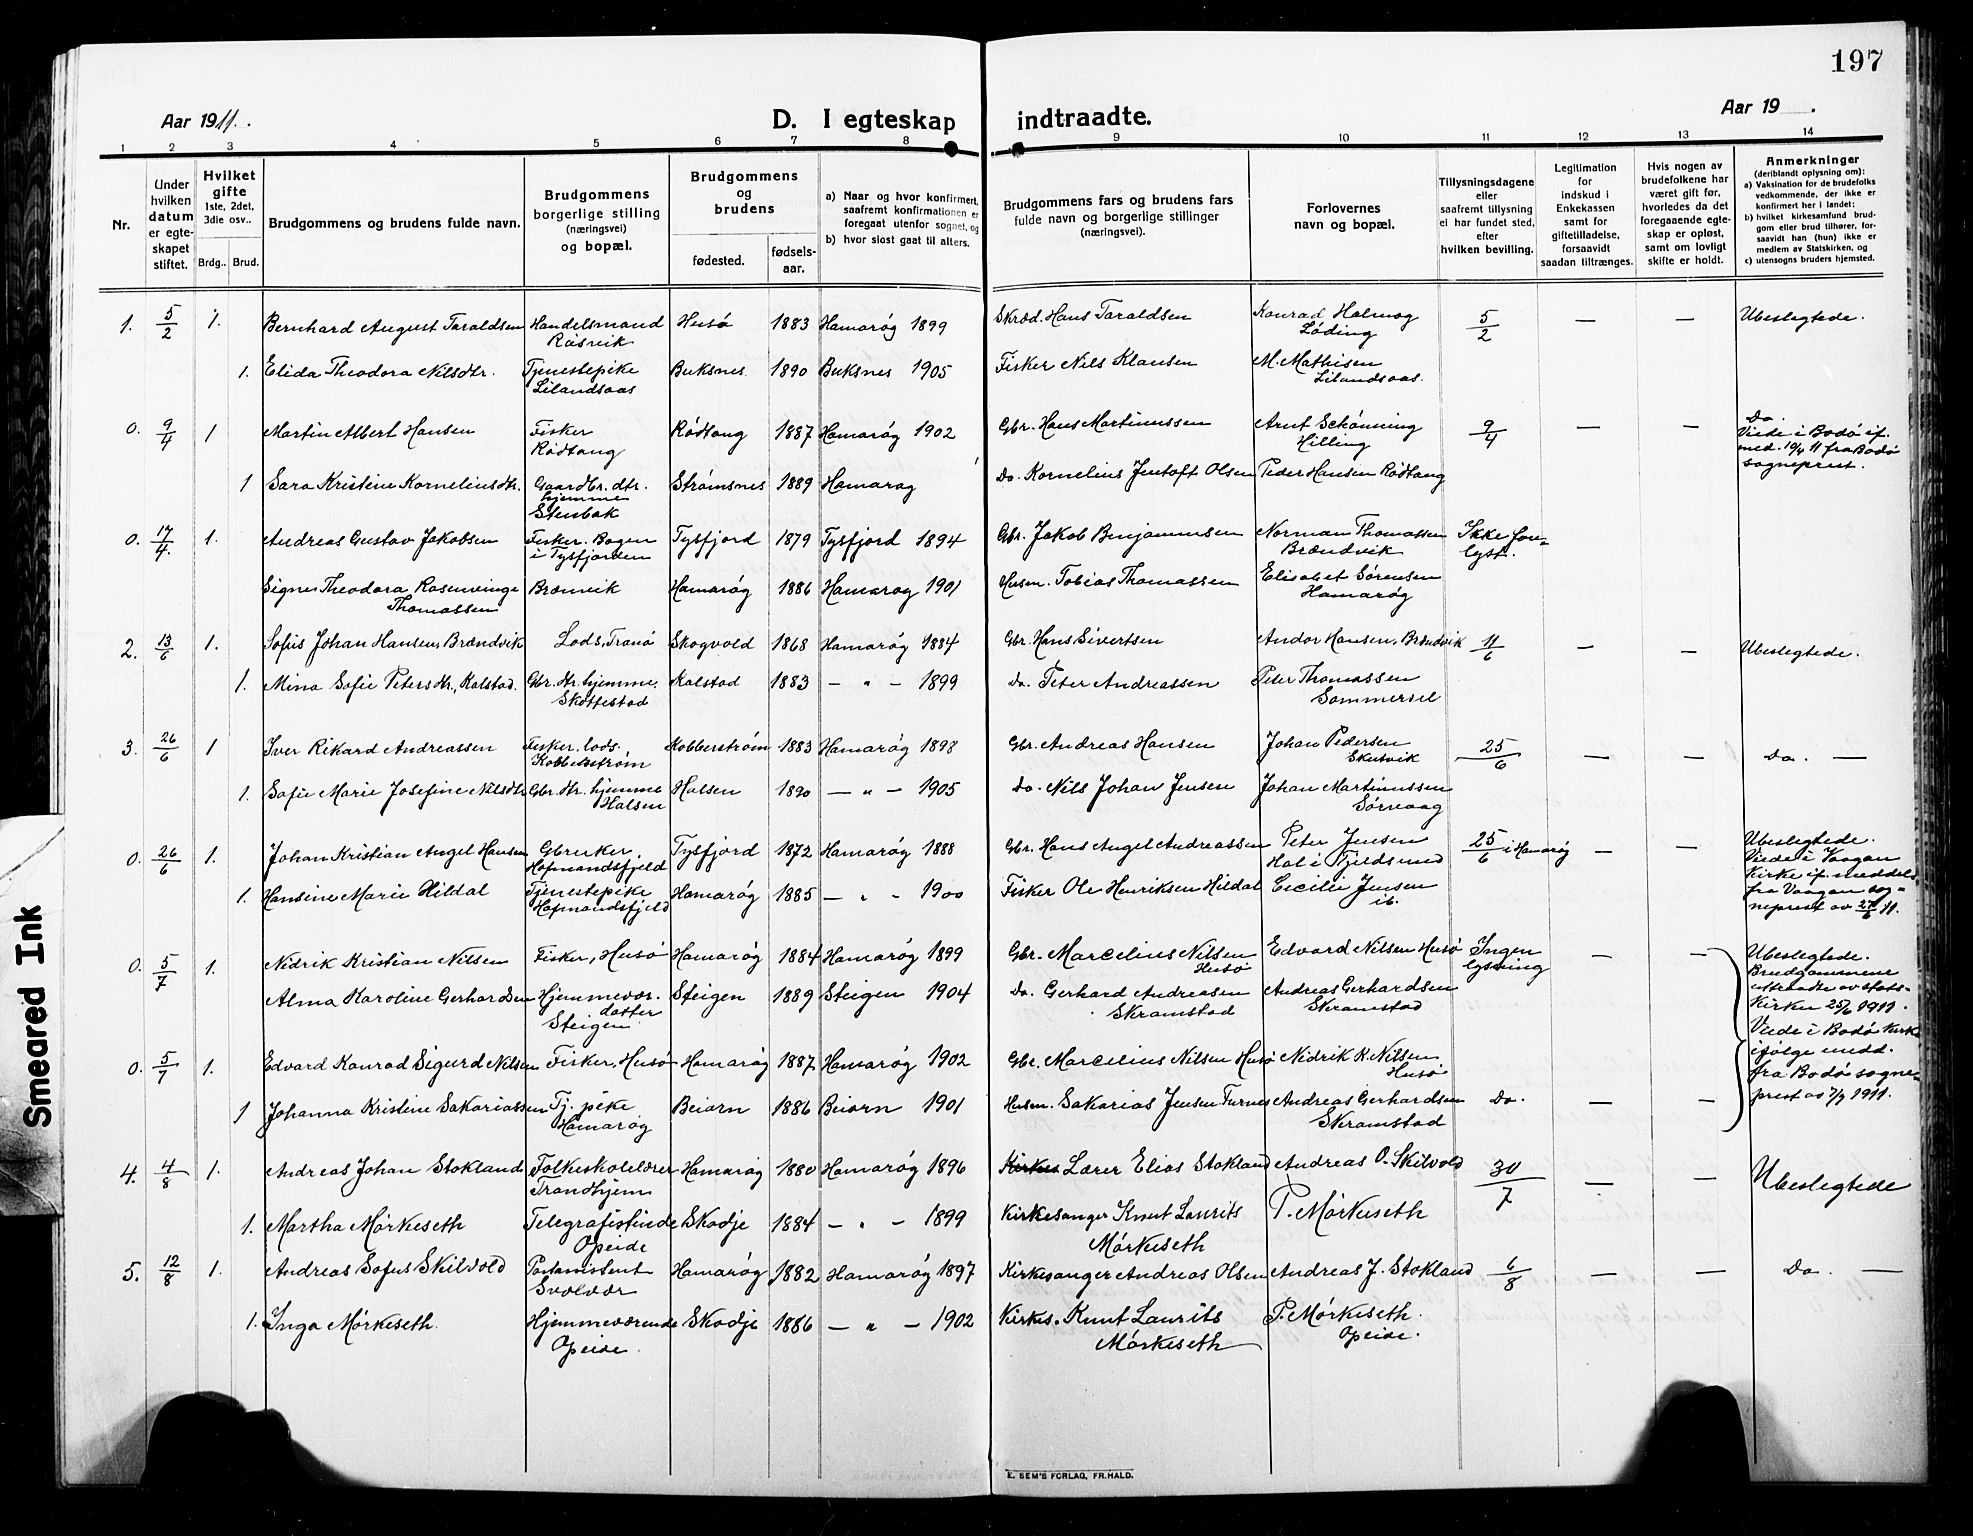 197
Aar 1911.
D. I egteskap indtraadte.
Aar 19 .
1 2 3 4 5 6 7 8 9 10 11 12 13 14
Nr.
Under hvilken datum er egte-skapet stiftet.
Hvilket gifte 1ste, 2det, 3die osv..
Brdg.. Brud.
Brudgommens og brudens fulde navn.
Brudgommens borgerlige stilling (næringsvei) og bopæl.
Brudgommens og brudens
fødested.
fødsels-aar.
a) Naar og hvor konfirmert, saafremt konfirmationen er foregaat utenfor sognet, og
b) hvor sidst gaat til alters.
Brudgommens fars og brudens fars fulde navn og borgerlige stillinger (næringsvei).
Forlovernes navn og bopæl.
Tillysningsdagene eller saafremt tillysning ei har fundet sted, efter hvilken bevilling.
Legitimation for indskud i Enkekassen samt for giftetilladelse, forsaavidt saadan tiltrænges.
Hvis nogen av brudefolkene har været gift før, hvorledes da det foregaaende egte-skap er opløst, samt om lovligt skifte er holdt.
Anmerkninger (deriblandt oplysning om):
a) Vaksination for de brudefolks vedkommende, der ikke er konfirmert her i landet;
b) hvilket kirkesamfund brud-gom eller brud tilhører, for-saavidt han (hun) ikke er medlem av Statskirken, og
c) utensogns bruders hjemsted.
1. 5/2 1. Bernhard August Taraldsen Handelsmand Røsvik Husö 1883 Hamarøg 1899 Skræd. Hans Taraldsen Konrad Holmog Løding 5/2 — — Ubeslegtede.
1. Elida Theodora Nilsdtr. Tjenestepike Lilandsaas Buksnes 1890 Buksnes 1905 Fisker Nils Klausen M. Mathisen Lilandsaas.
0. 9/4 1 Martin Albert Hansen Fisker Rødtang Rødtang 1887 Hamarøg 1902 Gbr. Hans Martinussen Arnt Schönning Hilling 9/4 — — Do. Viede i Bodø if. med. 19/4 11 fra Bodø sogneprest.
1 Sara Kristine Korneliusdtr. Gaardbr. dtr. hjemme Stenbak Strømsnes 1889 Hamarøg Do. Kornelius Jentoft Olsen Peder Hansen Rødtang
0. 17/4. 1. Andreas Gustav Jakobsen Fisker. Bogen i Tysfjorden Tysfjord 1879 Tysfjord 1894 Gbr. Jakob Benjaminsen Norman Thomassen Brændvik Ikke for-lyst.
Signe Theodora Rosenvinge Thomassen Brænvik Hamarøg 1886 Hamarøg 1901 Husm. Tobias Thomassen Elisabet Sörensen Hamarøg
2. 13/6 1. Sofus Johan Hansen, Brændvik Lods, Tranø Skogvold 1868 Hamarøg 1884 Gbr. Hans Sivertsen Andor Hansen, Brændvik 11/6 — — Ubeslegtede.
1. Mina Sofie Petersdtr., Kalstad. Gbr. dtr. hjemme. Skottestad Kalstad 1883 — " — 1899 Do. Peter Andreassen Peter Thomassen Sommersel
3. 26/6 1 Iver Rikard Andreassen Fisker. lods. Kobberstrøm Kobberstrøm 1883 Hamarøg 1898 Gbr. Andreas Hansen Johan Pedersen Skutvik 25/6 — — Do. —
1. Sofie Marie Josefine Nilsdtr. Gbr. dtr. hjemme Halsen Halsen 1890 — " — 1905 Do. Nils Johan Jensen Johan Martinussen Sörvaag
0. 26/6 1. Johan Kristian Angel Hansen Gbruker. Hofmandsfjeld Tysfjord 1872 Hamarøg 1888 Gbr. Hans Angel Andreassen Peter Jensen Hol i Tjeldsund 25/6 i Hamarøg — — Ubeslegtede. Viede i Vaagan Kirke if. meddels fra Vaagan sog-neprest av 27/6 11.
1. Hansine Marie Hildal Tjenestepike Hofmandsfjeld Hamarøg 1885 — " — 1900 Fisker Ole Henriksen Hildal Cecilie Jensen ib.
0. 5/7 1. Nidrik Kristian Nilsen Fisker, Husö Hamarøg 1884 Hamarøg 1899 Gbr. Marcelius Nilsen Husö Edvard Nilsen Husö Ingen lysning — — Ubeslegtede. Brudgommene uttraadte av stats-kirken 25/6 1911. Viede i Bodø kirke ifølge medd. fra Bodø sogne-prest av 7/7 1911.
Alma Karoline Gerhardsen Hjemmevær. datter Steigen Steigen 1889 Steigen 1904 Do. Gerhard Andreasen Skramstad Andreas Gerhardsen Skramstad
0. 5/7 1. Edvard Konrad Sigurd Nilsen Fisker, Husö Hamarøg 1887 Hamarøg 1902 Gbr. Marcelius Nilsen Husö Nidrik K. Nilsen Husö
1 Johanna Kristine Sakariassen Tj. pike Hamarøg Beiarn 1886 Beiarn 1901 Husm. Sakarias Jensen Furnes Andreas Gerhardsen Skramstad Do. — —
4. 4/8 1. Andreas Johan Stokland Folkeskolelærer Trondhjem Hamarøg 1880 Hamarøg 1896 Lærer Elias Stokland Andreas O. Skilvold 30/7 — — Ubeslegtede
1. Martha Mørkeseth Telegrafistinde Opeide Skodje 1884 — " — 1899 Kirkesanger Knut Laurits Mørkeseth P. Mørkeseth
5. 12/8 1. Andreas Sofus Skilvold Postassistent Svolvær Hamarøg 1882 Hamarøg 1897 Kirkesanger Andreas Olsen Andreas J. Stokland 6/8 — — Do. —
1. Inga Mørkeseth. Hjemmeværende Opeide. Skodje 1886 — " — 1902 Kirkes. Knut Laurits Mørkeseth P. Mørkeseth. Opeide.
E. SEM'S FORLAG, FR.HALD.
Smeared Ink